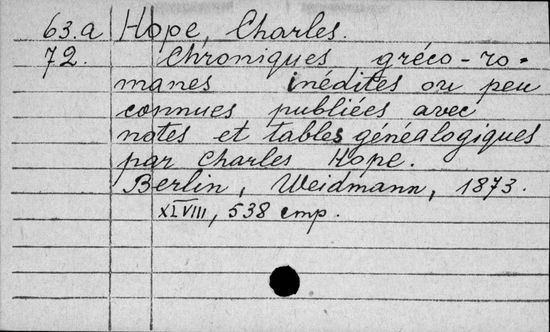 63.a Hope, Charles.
72. Chroniques gréco-ro-
manes inédites ou peu
connues publiées avec
notes et tables génealogiques
par Charles Hope.
Berlin, Weidmann, 1873.
XLVIII, 538 стр.